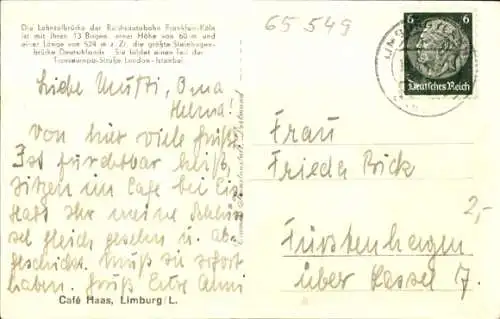 Die Lahntalbrücke der Reichsautobahn Frankfurt-Köln
ist mit ihren 13 Bogen, einer Höhe von 60 m und
einer Länge von 524 m z. Zr. die größte Steinbogen-
brücke Deutschlands. Sie bildet einen Teil der
Transeuropa-Straße London-Istanbul
65 549
6 6
Deutsches Reich
Liebe Mutti, Oma
Helma!
Von hier viele Grüße
Ist furchtbar heiß,
sitzen im Cafe bei Eis
Habt Ihr meine Schlüs
sel gleich gesehen u. ab-
geschickt. Muß sie sofort
haben. Gruß Eure Anni
Frau
Frieda Bick
Fürstenhagen
über Cassel 7.
2,-
Café Haas, Limburg/L.